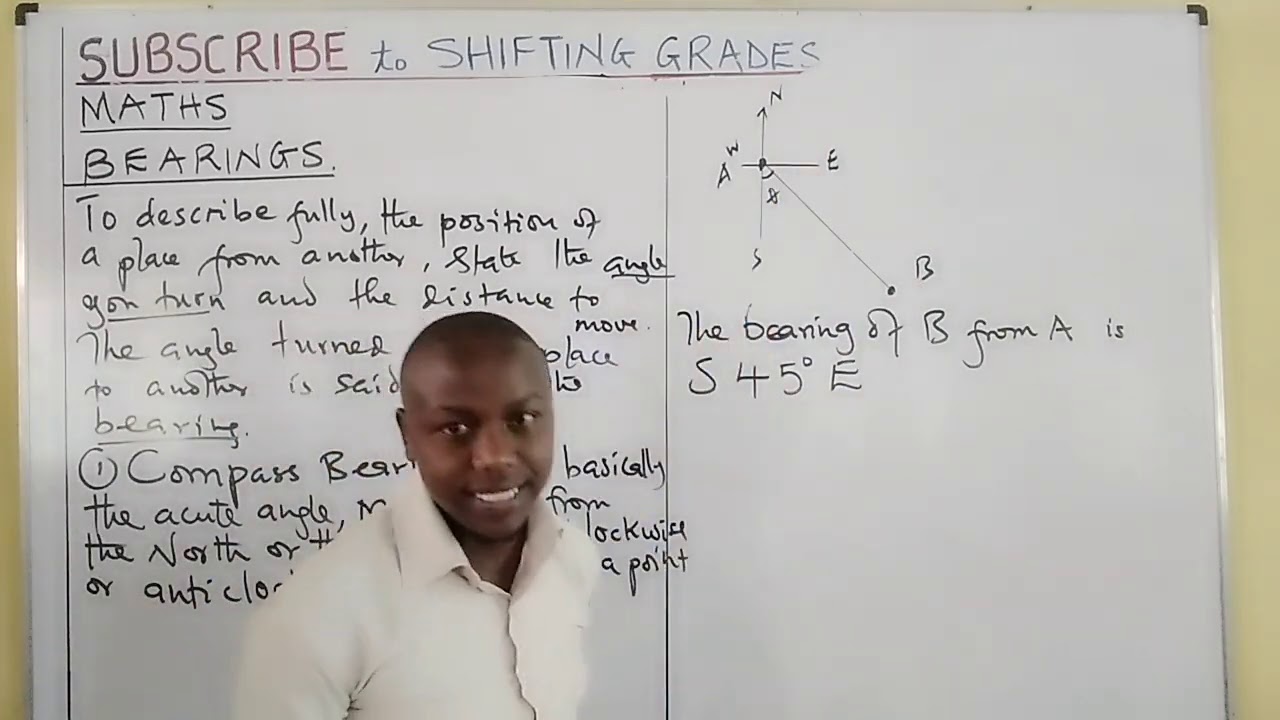 SUBSCRIBE to SHIFTING GRADES
MATHS
BEARINGS.
To describe fully, the position of
a place from another, state the angle
you turn and the distance to
move.
The angle turned place
to another is said
bearing.
① Compass Bear basically
the acute angle, from
the North or lockwise
or anticloc a point
N
W E
A
S
B
The bearing of B from A is
S 45° E